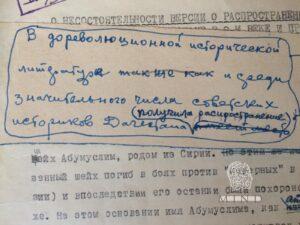 О НЕСОСТОЯТЕЛЬНОСТИ ВЕРСИИ О РАСПРОСТРАНЕ
В дореволюционной исторической
литературе так же как и среди
значительного числа советских
получила распространение
историков Дагестана
шейх Абумуслим, родом из Сирии.
венный шейх погиб в боях против "
ных" в
зии) и впоследствии его останки были похорон
хе. На этом основании имя Абумуслима, как